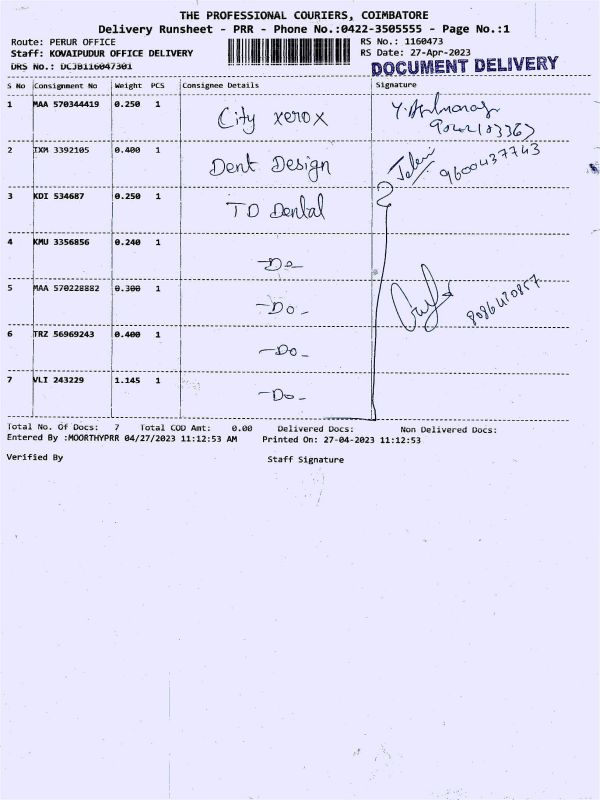 THE PROFESSIONAL COURIERS, COIMBATORE
Delivery Runsheet - PRR - Phone No.:0422-3505555 - Page No.:1
Route: PERUR OFFICE RS No.: 1160473
Staff: KOVAIPUDUR OFFICE DELIVERY RS Date: 27-Apr-2023
DRS No.: DCJB116047301 DOCUMENT DELIVERY
S No Consignment No Weight PCS Consignee Details Signature
1 MAA 570344419 0.250 1 City xerox
2 IXM 3392105 0.400 1 Dent Design 9600437743
3 KDI 534687 0.250 1 TD Dental
4 KMU 3356856 0.240 1 -Do-
5 MAA 570228882 0.300 1 -Do- 8086420857
6 TRZ 56969243 0.400 1 -Do-
7 VLI 243229 1.145 1 -Do-
Total No. Of Docs: 7 Total COD Amt: 0.00 Delivered Docs: Non Delivered Docs:
Entered By :MOORTHYPRR 04/27/2023 11:12:53 AM Printed On: 27-04-2023 11:12:53
Verified By Staff Signature